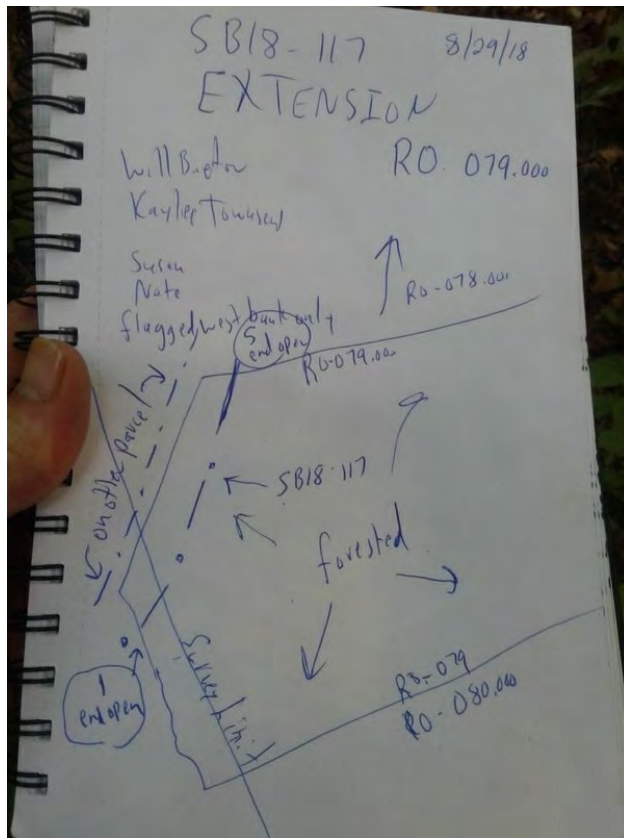 SB18-117 8/29/18
EXTENSION
RO. 079.000
Will
Kaylee Townsend
Susan
Nate
flagged west bank only
RO-078.000
5
end open
RO-079.000
on other parcel
SB18-117
forested
Survey Limit
1
end open
RO-079
RO-080.000